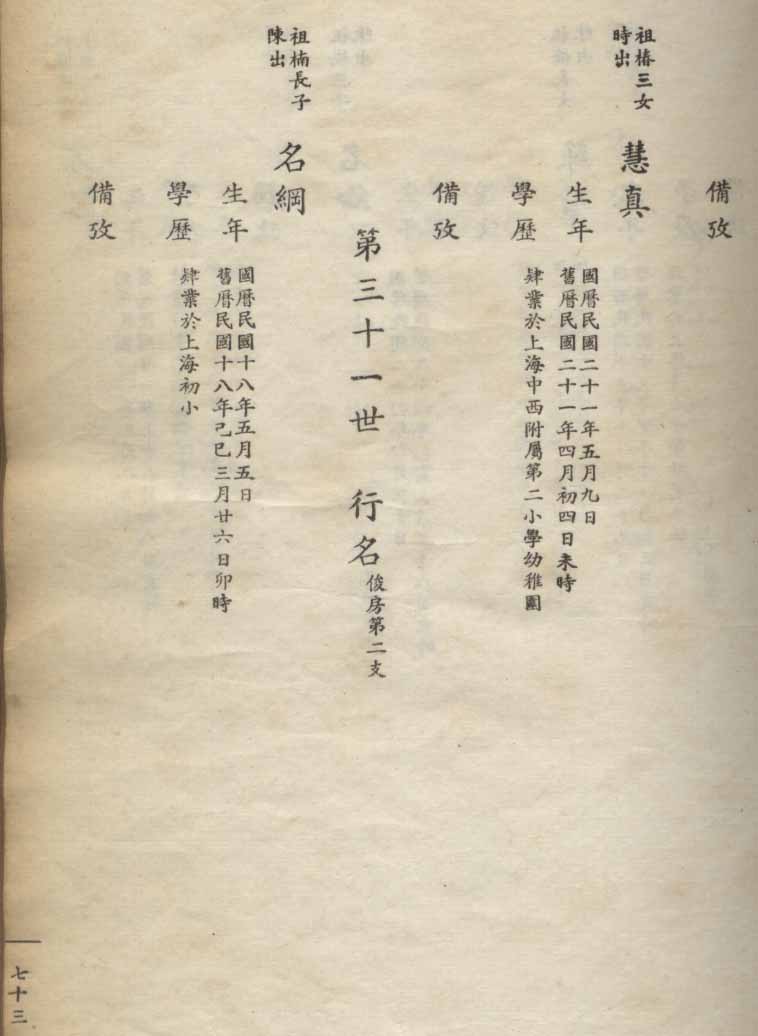 備攷
祖椿三女
時出
慧真
生年
國曆民國二十一年五月九日
舊曆民國二十一年四月初四日未時
學歷
肄業於上海中西附屬第二小學幼稚園
備攷
第三十一世 行名 俊房第二支
祖楠長子
陳出
名綱
生年
國曆民國十八年五月五日
舊曆民國十八年己巳三月廿六日卯時
學歷
肄業於上海初小
備攷
七十三